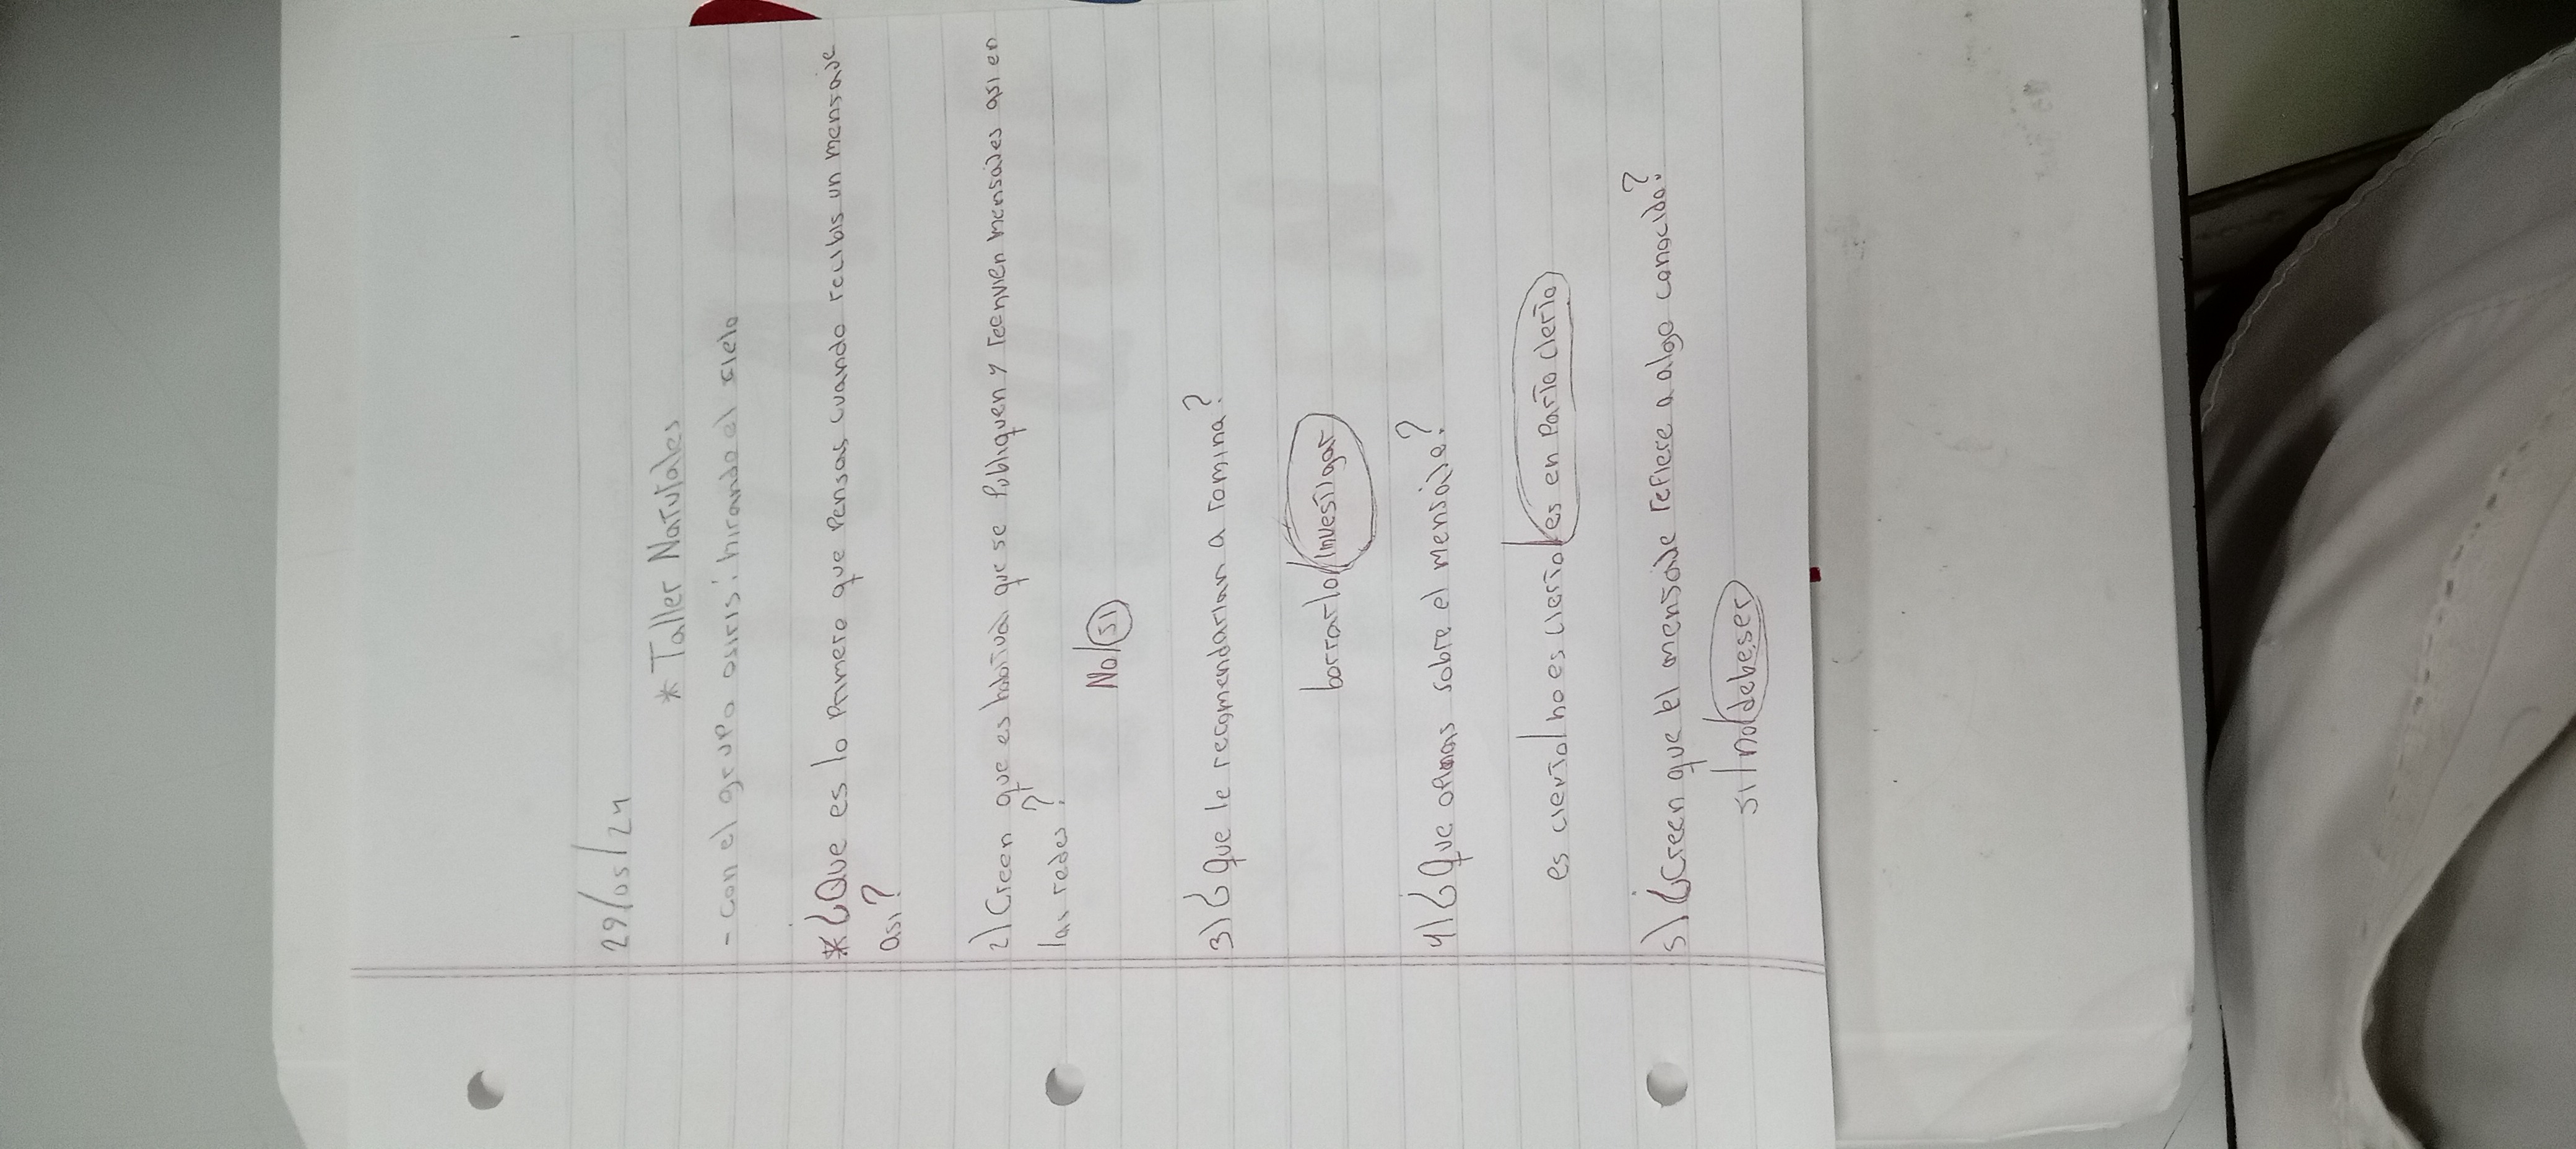 29/05/24
* Taller Naturales
- con el grupo osiris: mirando el cielo
* ¿Que es lo Primero que Pensas cuando recibis un mensaje
asi?
2) Creen que es habitual que se Publiquen y reenvien mensajes asi en
las redes?
No/si
3) ¿Que le recomendarian a romina?
borrarlo/investigar
4) ¿Que opinas sobre el mensaje?
es cierto/no es cierto/es en Parte cierto
5) ¿Creen que el mensaje refiere a algo conocido?
si/no/debe ser